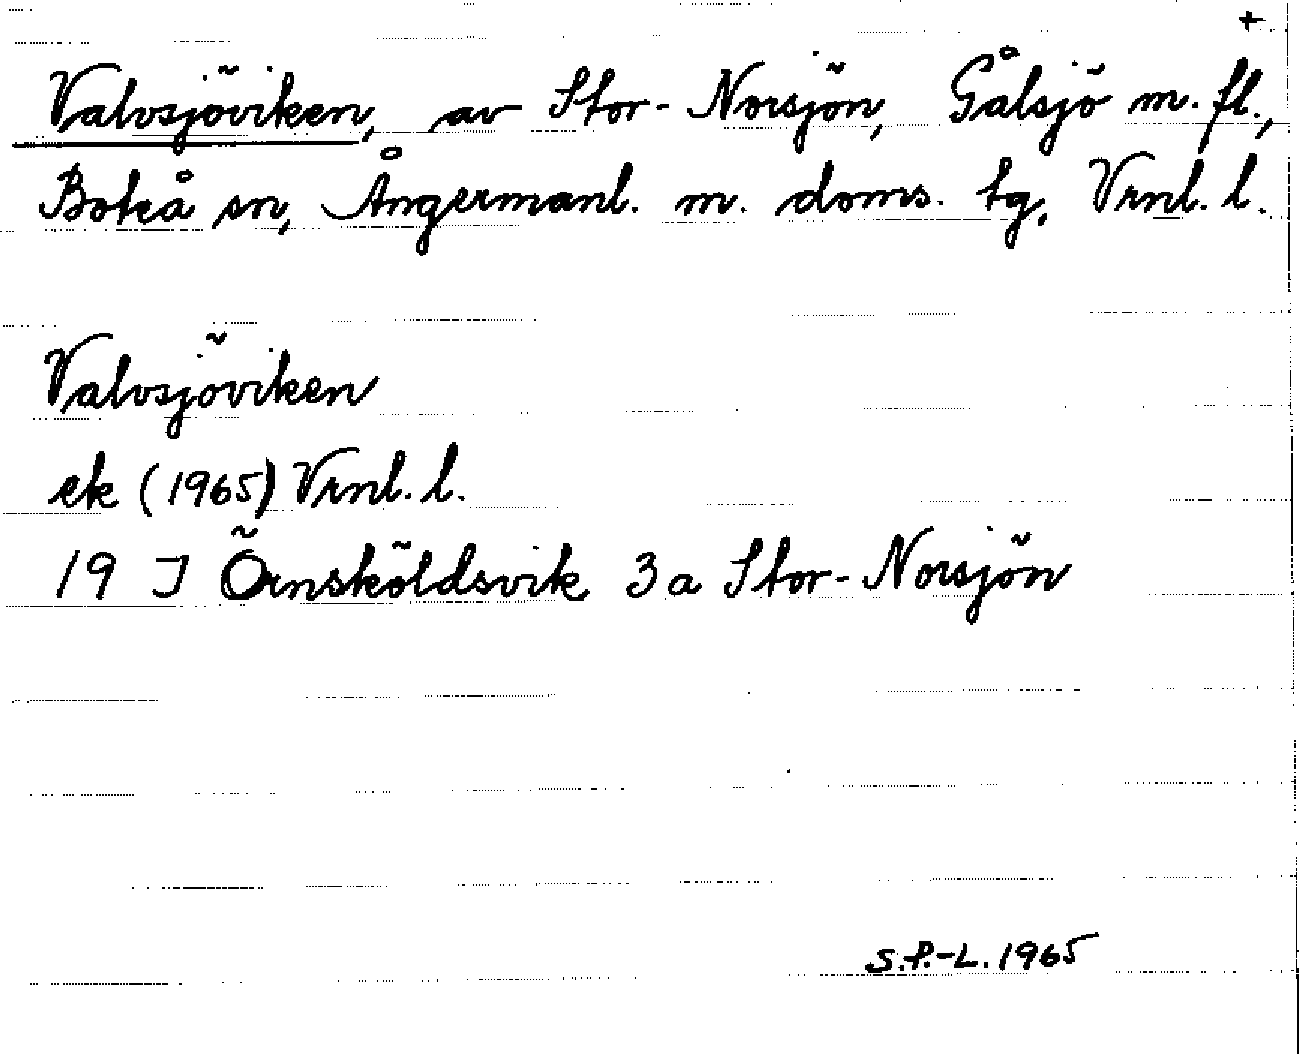 +
Valvsjöviken, av Stor-Norsjön, Gålsjö m. fl.,
Boteå sn, Ångermanl. m. doms. tg, Vrnl. l.
Valvsjöviken
ek (1965) Vrnl. l.
19 J Örnsköldsvik 3a Stor-Norsjön
S.P.-L. 1965